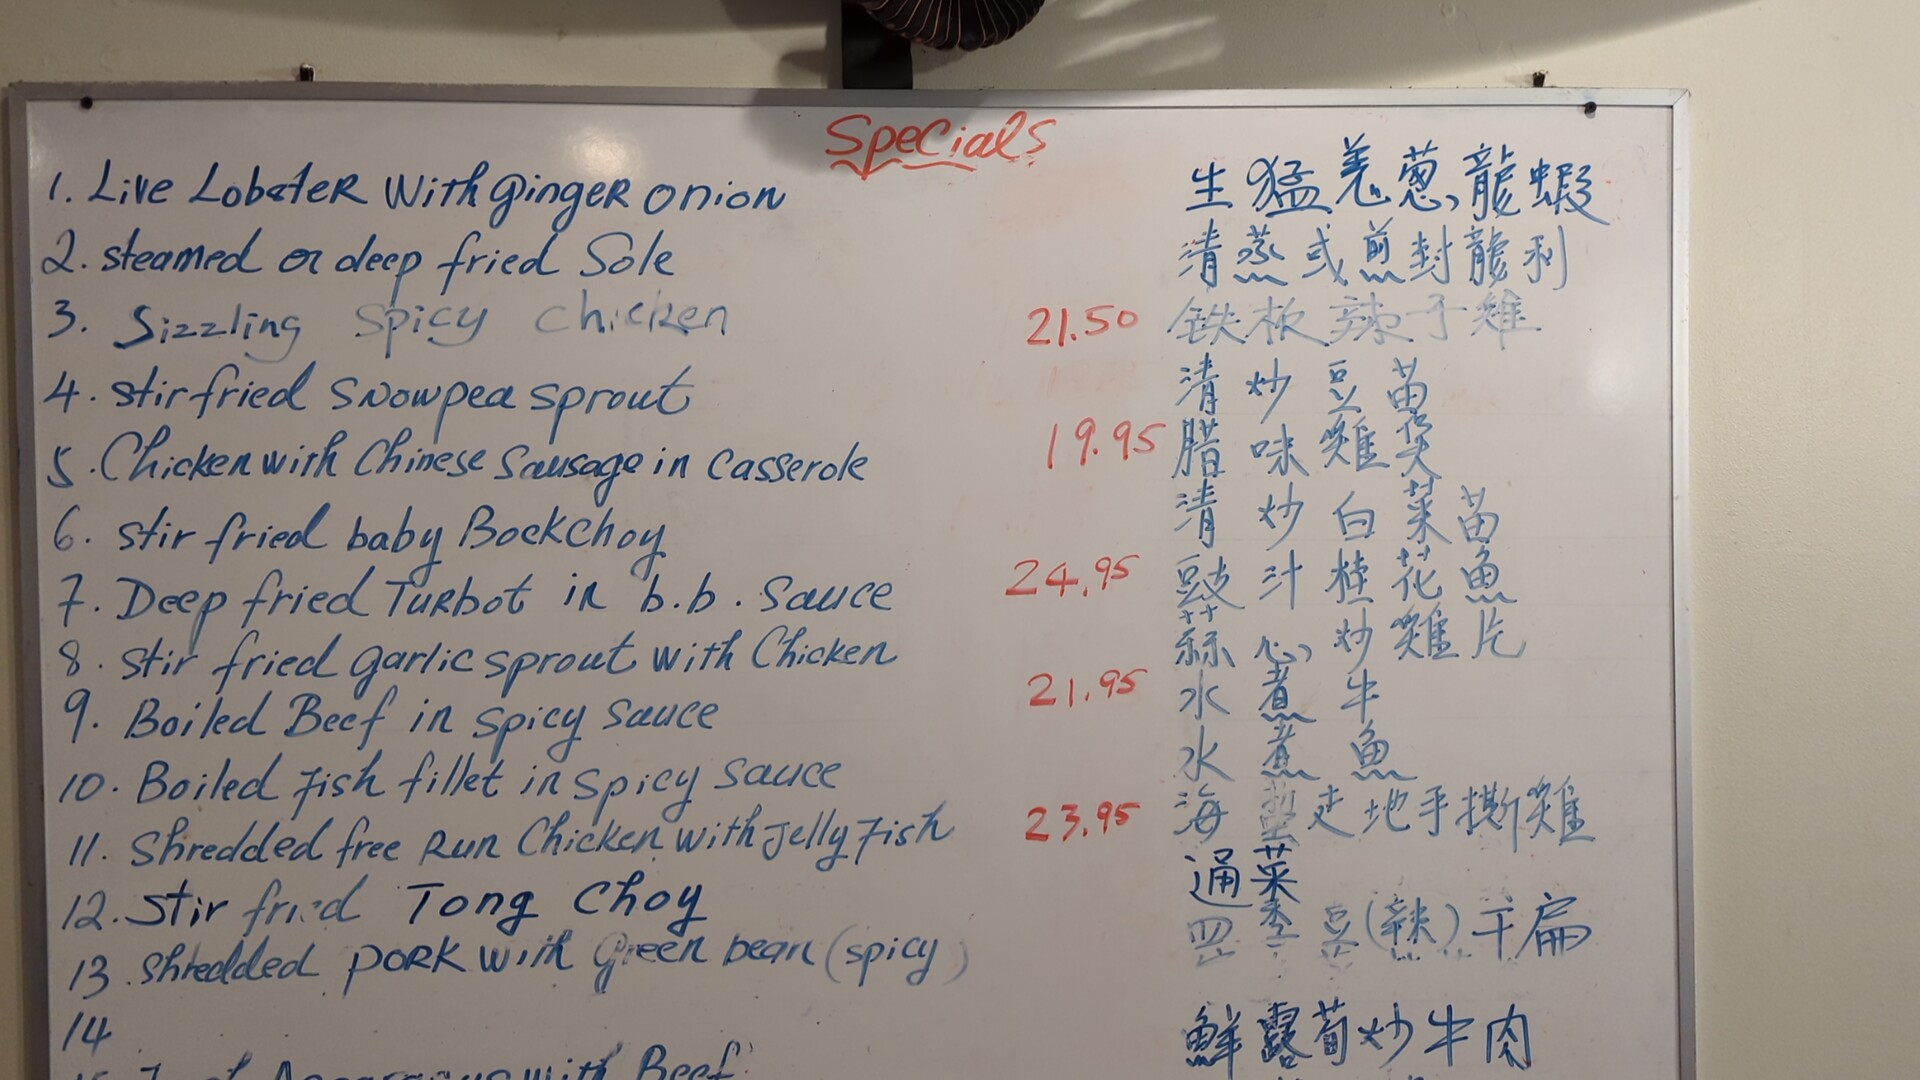 Specials
1. Live Lobster with ginger onion 生猛羗葱龍蝦
2. steamed or deep fried Sole 清蒸或煎封龍利
3. Sizzling Spicy Chicken 21.50 铁板辣子雞
4. stir fried snowpea sprout 清炒豆苗
5. Chicken with Chinese sausage in casserole 19.95 腊味雞煲
6. stir fried baby Bockchoy 清炒白菜苗
7. Deep fried Turbot in b.b. sauce 24.95 豉汁桂花魚
8. stir fried garlic sprout with Chicken 蒜心炒雞片
9. Boiled Beef in spicy sauce 21.95 水煮牛
10. Boiled Fish fillet in spicy sauce 水煮魚
11. Shredded free Run Chicken with Jelly Fish 23.95 海蜇走地手撕雞
12. Stir fried Tong Choy 通菜
13. shredded pork with Green bean (spicy) 四季豆(辣)干扁
14
鮮露荀炒牛肉
with Beef